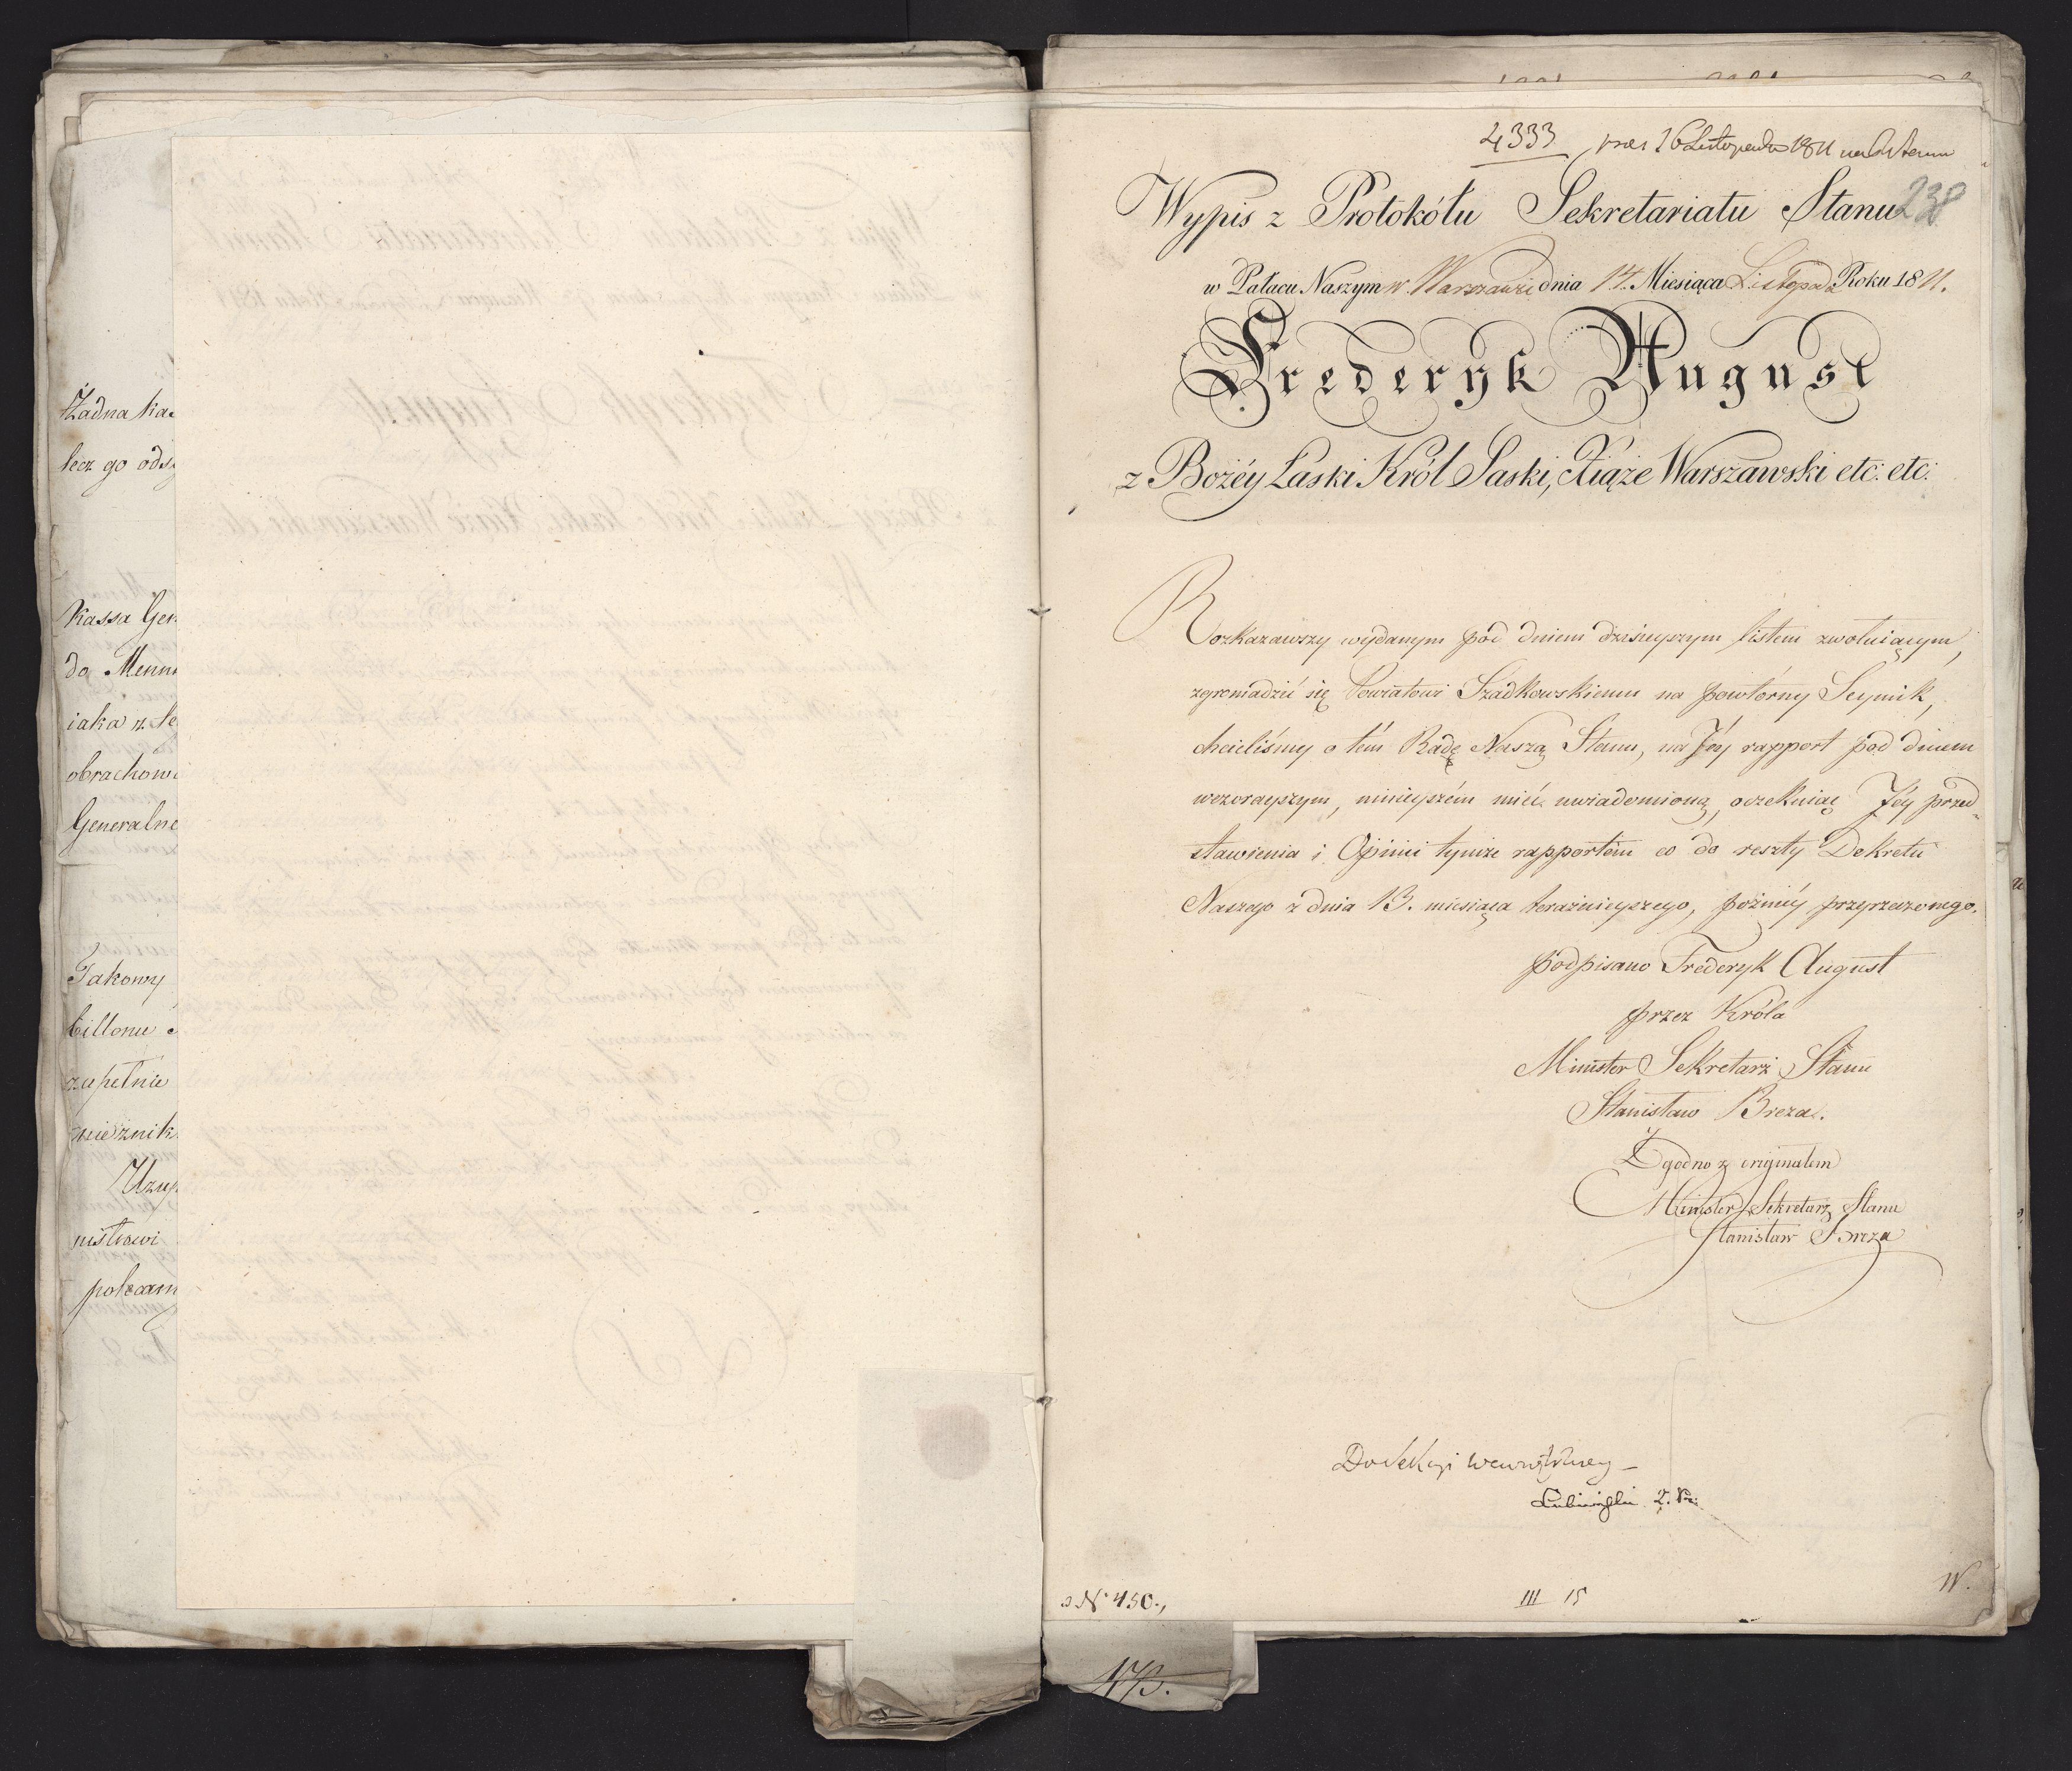 Żadna ka
lecz go ods
Kassa Gen
do Menn
iaka z. te
obrachow
Generalne
Takowy
billonu
zupełnie
Uzup
nistrowi
polecam
4333 16 Listopada 1811
Wypis z Protokółu Sekretariatu Stanu 238
w Pałacu Naszym w Warszawie dnia 14. Miesiąca Listopada Roku 1811.
Frederyk August
z Bożéy Łaski Król Saski, Xiąże Warszawski etc: etc:
Rozkazawszy wydanym pod dniem dzisieyszym listem zwołuiącym,
zgromadzić się Powiatowi Szadkowskiemu na powtórny Seymik,
chcieliśmy o tém Radę Naszą Stanu, na Jéy rapport pod dniem
wczorayszym, ninieyszém mieć uwiadomioną, oczekuiąc Jéy przed-
stawienia i Opinii tymże rapportem co do reszty Dekretu
Naszego z dnia 13. miesiąca teraźnieyszego, poźniéy przyrzeczonego.
podpisano Frederyk August
przez Króla
Minister Sekretarz Stanu
Stanisław Breza.
Zgodno z oryginałem
Minister Sekretarz Stanu
Stanisław Breza
Do Sekcyi wewnętrzney –
Lubieński
N° 450.,
III 15
W.
473.